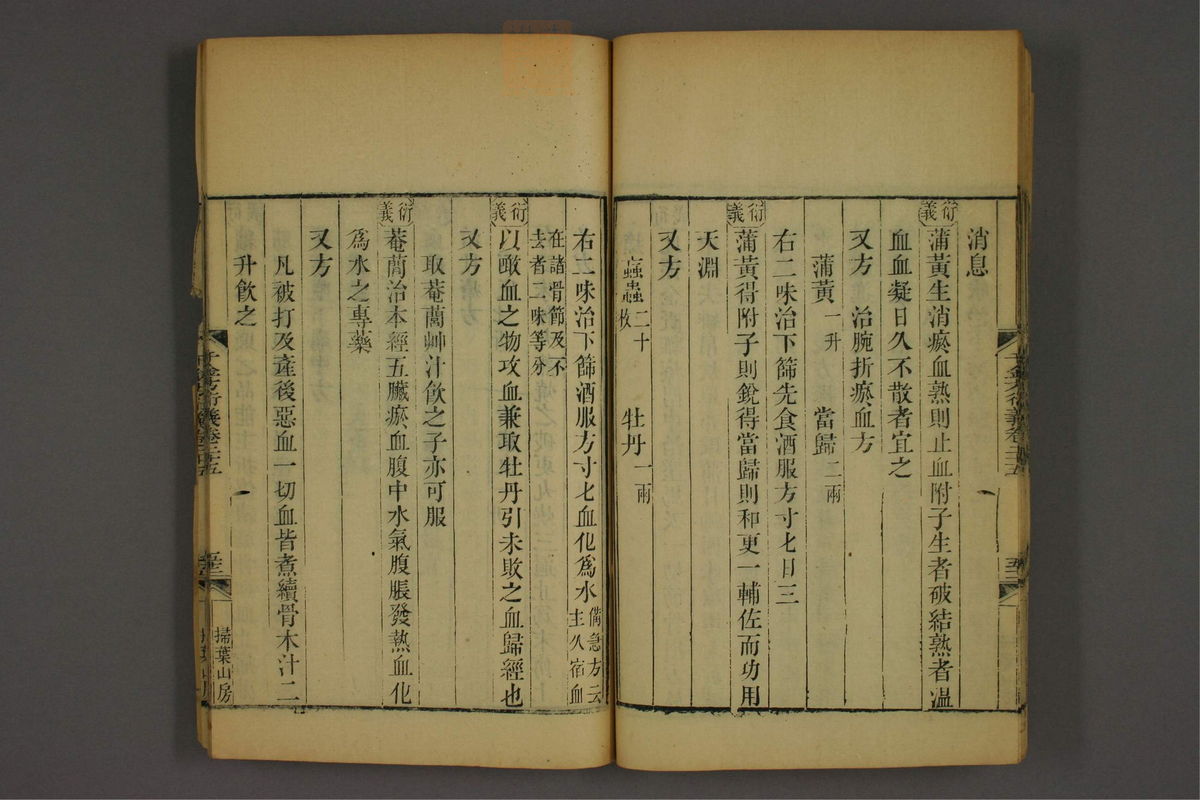 消息
衍義 蒲黃生消瘀血熟則止血附子生者破結熟者溫
血血凝日久不散者宜之
又方 治腕折瘀血方
蒲黃一升 當歸二兩
右二味治下篩先食酒服方寸匕日三
衍義 蒲黃得附子則銳得當歸則和更一輔佐而功用
天淵
又方
䗪蟲二十枚 牡丹一兩
右二味治下篩酒服方寸匕血化爲水備急方云主久宿血
在諸骨節及不去者二味等分
衍義 以噉血之物攻血兼取牡丹引未敗之血歸經也
又方
取菴䕡艸汁飲之子亦可服
衍義 菴䕡治本經五臟瘀血腹中水氣腹脹發熱血化
爲水之專藥
又方
凡被打及產後惡血一切血皆煮續骨木汁二
升飲之
千金方衍義卷二十五
掃葉山房